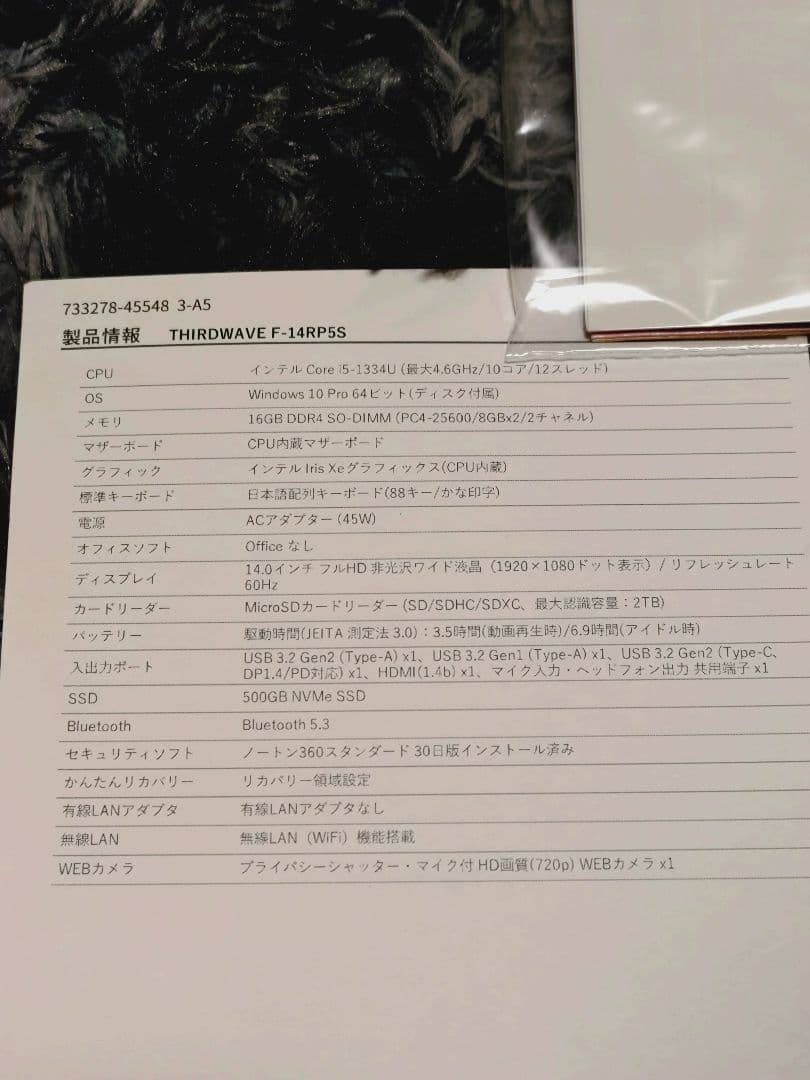 733278-45548 3-A5
製品情報 THIRDWAVE F-14RP5S
CPU インテル Core i5-1334U (最大4.6GHz/10コア/12スレッド)
OS Windows 10 Pro 64ビット(ディスク付属)
メモリ 16GB DDR4 SO-DIMM (PC4-25600/8GBx2/2チャネル)
マザーボード CPU内蔵マザーボード
グラフィック インテル Iris Xeグラフィックス(CPU内蔵)
標準キーボード 日本語配列キーボード(88キー/かな印字)
電源 ACアダプター (45W)
オフィスソフト Office なし
ディスプレイ 14.0インチ フルHD 非光沢ワイド液晶 (1920×1080ドット表示) / リフレッシュレート
60Hz
カードリーダー MicroSDカードリーダー (SD/SDHC/SDXC、最大認識容量：2TB)
バッテリー 駆動時間(JEITA 測定法 3.0)：3.5時間(動画再生時)/6.9時間(アイドル時)
入出力ポート USB 3.2 Gen2 (Type-A) x1、USB 3.2 Gen1 (Type-A) x1、USB 3.2 Gen2 (Type-C、
DP1.4/PD対応) x1、HDMI(1.4b) x1、マイク入力・ヘッドフォン出力 共用端子 x1
SSD 500GB NVMe SSD
Bluetooth Bluetooth 5.3
セキュリティソフト ノートン360スタンダード 30日版インストール済み
かんたんリカバリー リカバリー領域設定
有線LANアダプタ 有線LANアダプタなし
無線LAN 無線LAN（WiFi）機能搭載
WEBカメラ プライバシーシャッター・マイク付 HD画質(720p) WEBカメラ x1